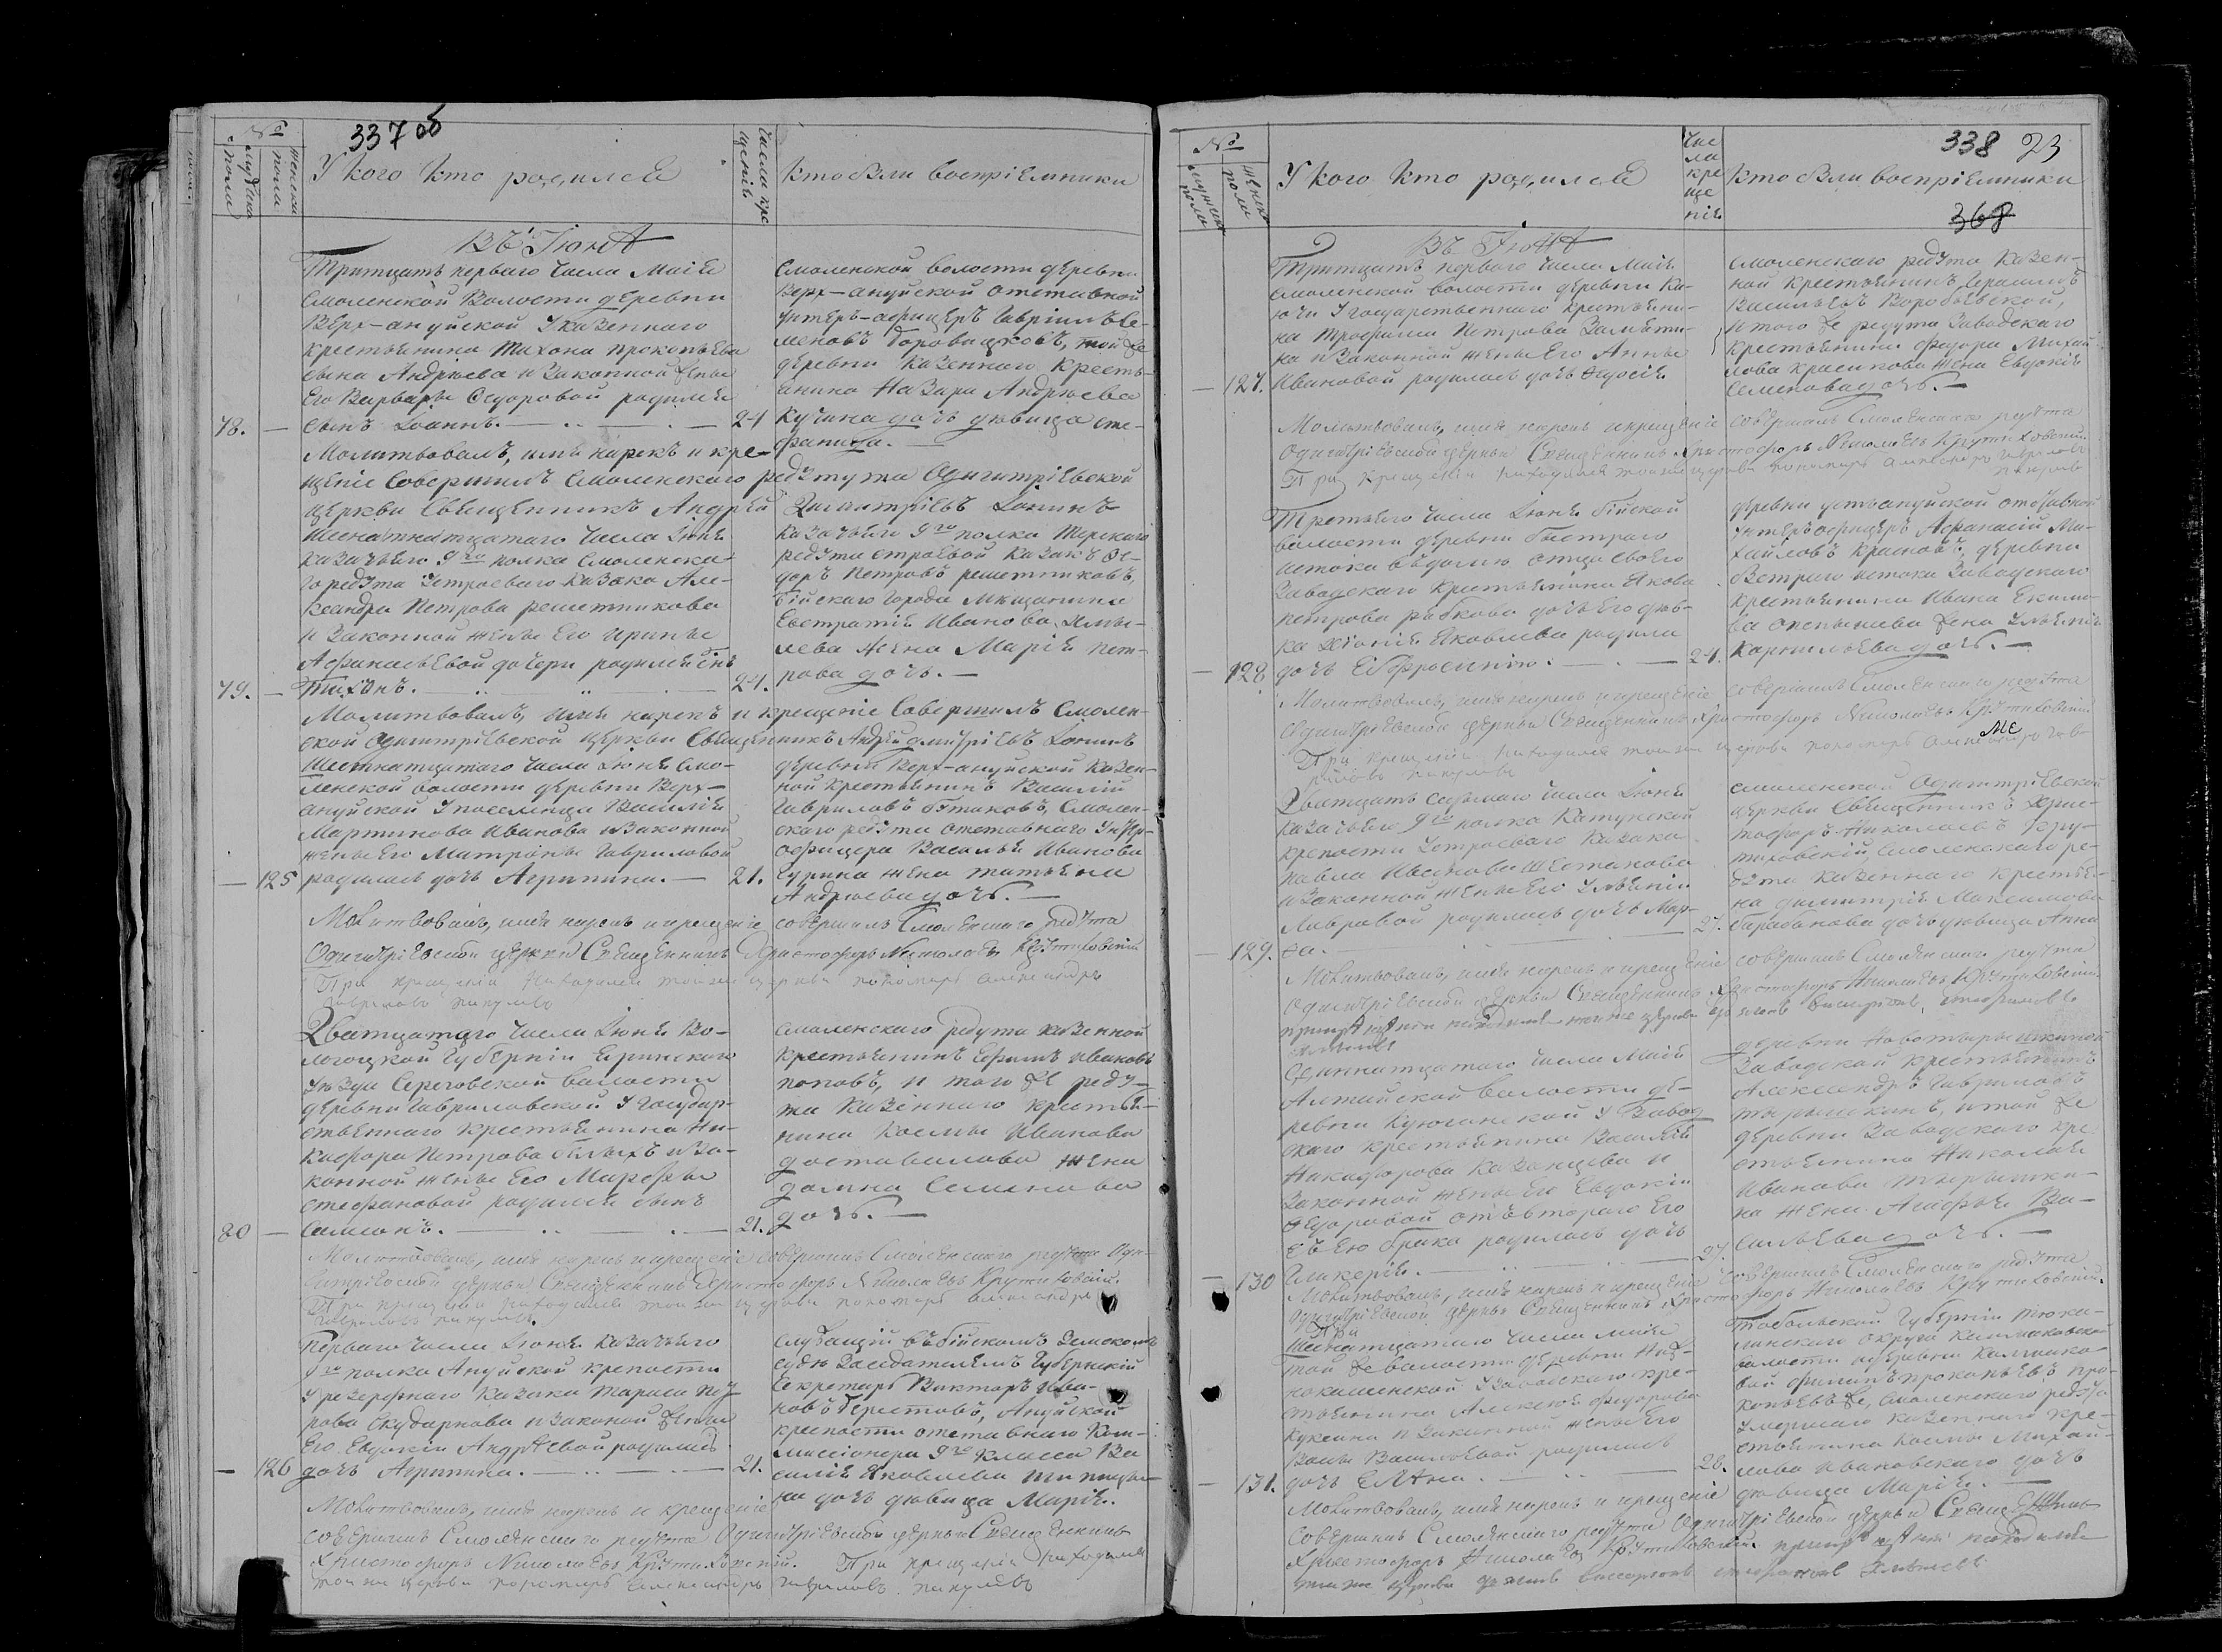 337 об
№
мужска пола
женска пола
У кого кто родился
Числа крещенія
Кто были воспріемники
Въ Іюнѣ
Тритцать перваго числа Маія
Смоленской Волости деревни
Верх-ануйской У казеннаго
крестьянина Тихона Прокопьева
сына Андреева и законной жены
Его Варвары Седоровой родился
78. — сынъ Іоаннъ. — 24
Смоленской волости деревни
Верх-ануйской отставной
унтеръ-афицеръ Гавріилъ Се-
меновъ Боровицковъ, той же
деревни казеннаго кресть-
янина Назара Андреева
Кучина дочь девица Сте-
фанида. —
Молитвовалъ, имя нарекъ и кре-
щеніе Совершилъ Смоленскаго редута Одигитріевской
церкви Священникъ Андрей Димитріевъ
Шеснатцатаго числа Іюня
казачьяго 9го полка Смоленска-
го редута Устроеваго казака Але-
ксандра Петрова Решетникова
и законной жены Его Ирины
Афанасьевой дочери родился сынъ
79. — Тихонъ. — 24.
казачьяго 9го полка Терскаго
редута строевой казакъ Фе-
доръ Петровъ Решетниковъ,
Бійскаго города мещанина
Евстратія Иванова
жена Марія Пет-
рова дочь. —
Молитвовалъ, имя нарекъ и крещеніе Совершилъ Смолен-
ской Одигитріевской церкви Священникъ Андрей Димитріевъ
Шестнатцатаго числа Іюня Смо-
ленской волости деревни Верх-
ануйской У поселенца Василія
Мартинова Иванова и законной
жены Его Матроны Гавриловой
— 125 родилась дочь Агрипина. — 21.
деревни Верх-ануйской казен-
ной крестьянинъ Василій
Гавриловъ Смолен-
скаго редута отставнаго Унтер-
офицера Василья Иванова
Чурина жена Татьяна
Андреева дочь. —
Молитвовалъ, имя нарекъ и крещеніе совершилъ Смоленскаго редута
Одигитріевской церкви Священникъ Христофоръ Николаевъ Крутиховскій
При крещеніи находился той же церкви пономарь Александръ
Гавриловъ
Дватцатаго числа Іюня Во-
логоцкой Губерніи Яринскаго
Уезда Сереговской волости
деревни Гавриловской У государ-
ственнаго крестьянина Ни-
кифора Петрова Белыхъ и за-
конной жены Его Марфы
Стефановой родился сынъ
80 — Самсонъ. — 21.
Смоленскаго редута казенной
крестьянинъ Ефимъ Ивановъ
Поповъ, и того же реду-
та казеннаго крестья-
нина Косьмы Иванова
Доставалова жена
Домна Семенова
дочь. —
Молитвовалъ, имя нарекъ и крещеніе совершилъ Смоленскаго редута Оди-
гитріевской церкви Священникъ Христофоръ Николаевъ Крутиховскій.
При крещеніи находился той же церкви пономарь Александръ
Гавриловъ
Перваго числа Іюня казачьяго
9го полка Ануйской крепости
У резервнаго казака Тараса Пет-
рова Скударнова и законой жены
Его Евдокіи Андреевой родилась
— 126 дочь Агрипина. — 21.
Служащій въ Бійскомъ Земскомъ
суде Заседателемъ Губернскій
Секретарь Викторъ Ива-
новъ Берестовъ, Ануйской
крепости отставнаго Ком-
миссіонера 9го класса Ва
силія Яковлева
на дочь девица Марія.
Молитвовалъ, имя нарекъ и крещеніе
совершилъ Смоленскаго редута Одигитріевской церкви Священникъ
Христофоръ Николаевъ Крутиховскій. При крещеніи находился
той же церкви пономарь Александръ Гавриловъ
338 23
368
№
мужска пола
женска пола
У кого кто родился
Чис
ла
кре
ще
нія
Кто были воспріемники
Въ Іюнѣ
Тритцать перваго числа Маія
Смоленской волости деревни Ка-
ючи У государственнаго крестьяни-
на Трофима Петрова Замяти-
на и законной жены Его Анны
— 127. Ивановой родилась дочь
Смоленскаго редута казен-
ной крестьянинъ Герасимъ
Васильевъ Воробьевской,
и того же редута заводскаго
крестьянина Федора Михай-
лова Красикова жена Евдокія
Семенова дочь. —
Молитвовалъ, имя нарекъ и крещеніе совершилъ Смоленскаго редута
Одигитріевской церкви Священникъ Христофоръ Николаевъ Крутиховскій
При крещеніи находился той же церкви пономарь Александръ Гавриловъ
Третьяго числа Іюня Бійской
волости деревни Быстраго
истока въ доме отца своего
Заводскаго крестьянина Якова
Петрова Рыбкова дочь Его дев-
ка Яковлева родила
— 128 дочь Евфросинію. — 24.
деревни Устьануйской отставной
Унтеръ офицеръ Афанасій Ми-
хайловъ Красновъ, деревни
Быстраго истока Заводскаго
крестьянина Ивана Екимо-
ва жена Ульянія
Карнильева дочь. —
Молитвовалъ, имя нарекъ и крещеніе совершилъ Смоленскаго редута
Одигитріевской церкви Священникъ Христофоръ Николаевъ Крутиховскій
При крещеніи находился той же церкви пономарь Александръ Гав-
риловъ
Дватцать седьмаго числа Іюня
казачьяго 9го полка Катунской
крепости Устроеваго казака
Павла Шестакова
и законной жены Его Ульяніи
Лавровой родилась дочь Мар-
— 129. фа. — 27.
Смоленской Одигитріевской
церкви Священникъ Хрис-
тофоръ Николаевъ Кру-
тиховскій Смоленскаго ре-
дута казеннаго крестья-
на Димитрія Максимова
Барабанова дочь девица Анна
Молитвовалъ, имя нарекъ и крещеніе совершилъ Смоленскаго редута
Одигитріевской церкви Священникъ Христофоръ Николаевъ Крутиховскій
при крещеніи находился той же церкви
Одиннатцатаго числа Маія
Алтайской волости де-
ревни Куяганской У Завод
скаго крестьянина Василія
Никифорова Казанцева и
законной жены Его Евдокіи
Федоровой отъ втораго Его
съ Ею брака родилась дочь
— 130 Гликерія. — 27.
деревни Новотырышкиной
Заводской крестьянинъ
Александръ Гавриловъ
Тырышкинъ, и той же
деревни Заводскаго кре-
стьянина Николая
Иванова Тырышки-
на жена Агафья Ва-
сильева дочь. —
Молитвовалъ, имя нарекъ и крещеніе совершилъ Смоленскаго редута
Одигитріевской церкви Священникъ Христофоръ Николаевъ Крутиховскій.
При
Шеснатцатаго числа Маія
той же волости деревни Ниж-
некаменской У Заводскаго кре-
стьянина Алексея Федорова
Куксина и законной жены Его
Васильевой родилась
— 131. дочь Елена. — 28.
Тобольской Губерніи Тюка-
линскаго округа Калмаковской
волости деревни Калмако-
вой Филипъ Прокопьевъ Про-
копьевъ же, Смоленскаго редута
Умершаго казеннаго кре-
стьянина Косьмы Михай-
лова Ивановскаго дочь
девица Марія. —
Молитвовалъ, имя нарекъ и крещеніе
совершилъ Смоленскаго редута Одигитріевской церкви Священникъ
Христофоръ Николаевъ Крутиховскій. при крещеніи находился
той же церкви